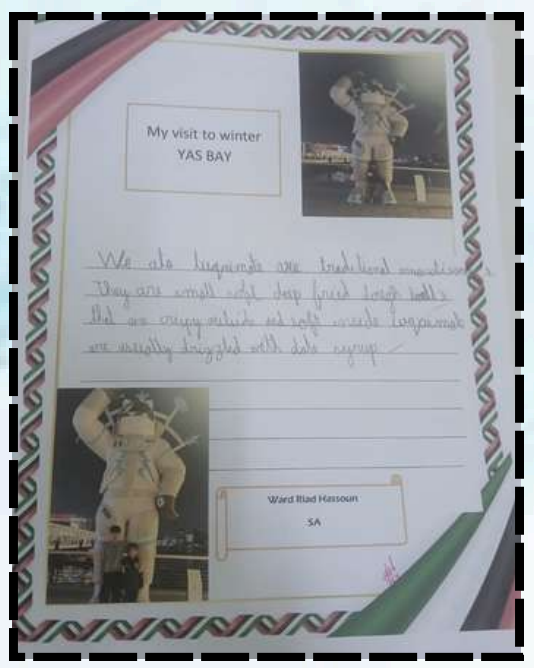 My visit to winter
YAS BAY
We ate luqaimats are traditional
They are small soft deep fried dough balls
that are crispy outside and soft inside luqaimat
are usually drizzled with date syrup
Ward Riad Hassoun
5A